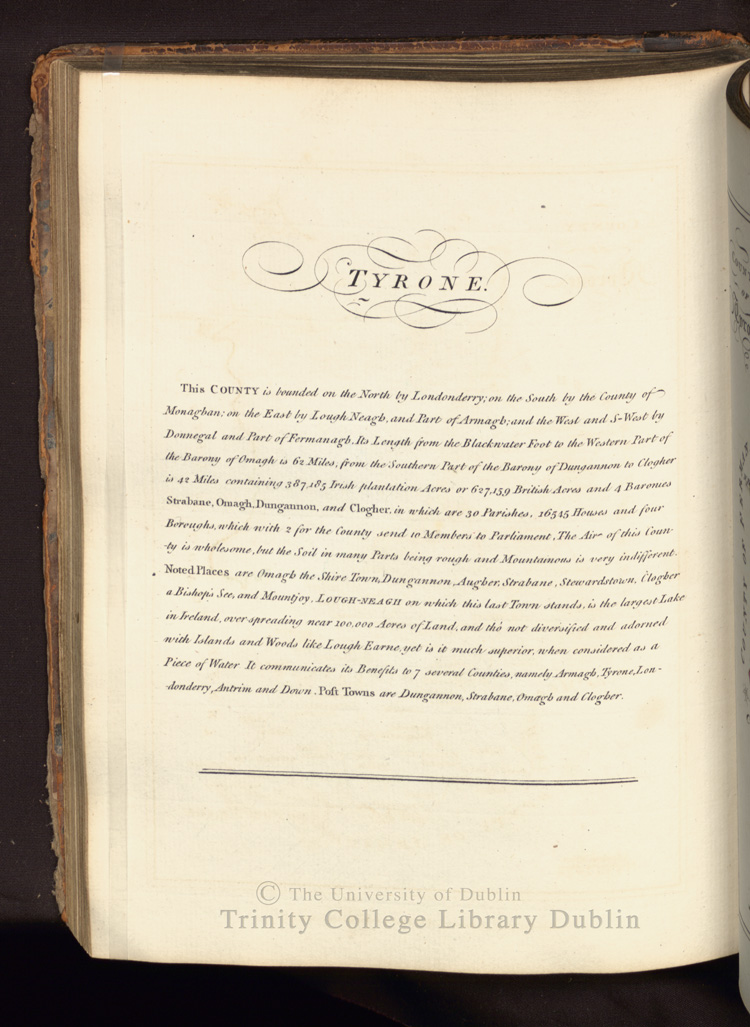 TYRONE.
This COUNTY is bounded on the North by Londonderry; on the South by the County of
Monaghan; on the East by Lough Neagh, and Part of Armagh; and the West and S-West by
Donnegal and Part of Fermanagh. Its Length from the Blackwater Foot to the Western Part of
the Barony of Omagh is 62 Miles, from the Southern Part of the Barony of Dungannon to Clogher
is 42 Miles containing 387,185 Irish plantation Acres or 627,159 British Acres and 4 Baronies
Strabane, Omagh, Dungannon, and Clogher, in which are 30 Parishes, 16545 Houses and four
Boroughs, which with 2 for the County send 10 Members to Parliament. The Air of this Coun-
-ty is wholesome, but the Soil in many Parts being rough and Mountainous is very indifferent.
Noted Places are Omagh the Shire Town, Dungannon, Augher, Strabane, Stewardstown, Clogher
a Bishop's See, and Mountjoy, LOUGH-NEAGH on which this last Town stands, is the largest Lake
in Ireland, overspreading near 100,000 Acres of Land, and tho' not diversified and adorned
with Islands and Woods like Lough Earne, yet is it much superior, when considered as a
Piece of Water It communicates its Benefits to 7 several Counties, namely Armagh, Tyrone, Lon-
-donderry, Antrim and Down. Post Towns are Dungannon, Strabane, Omagh and Clogher.
© The University of Dublin
Trinity College Library Dublin